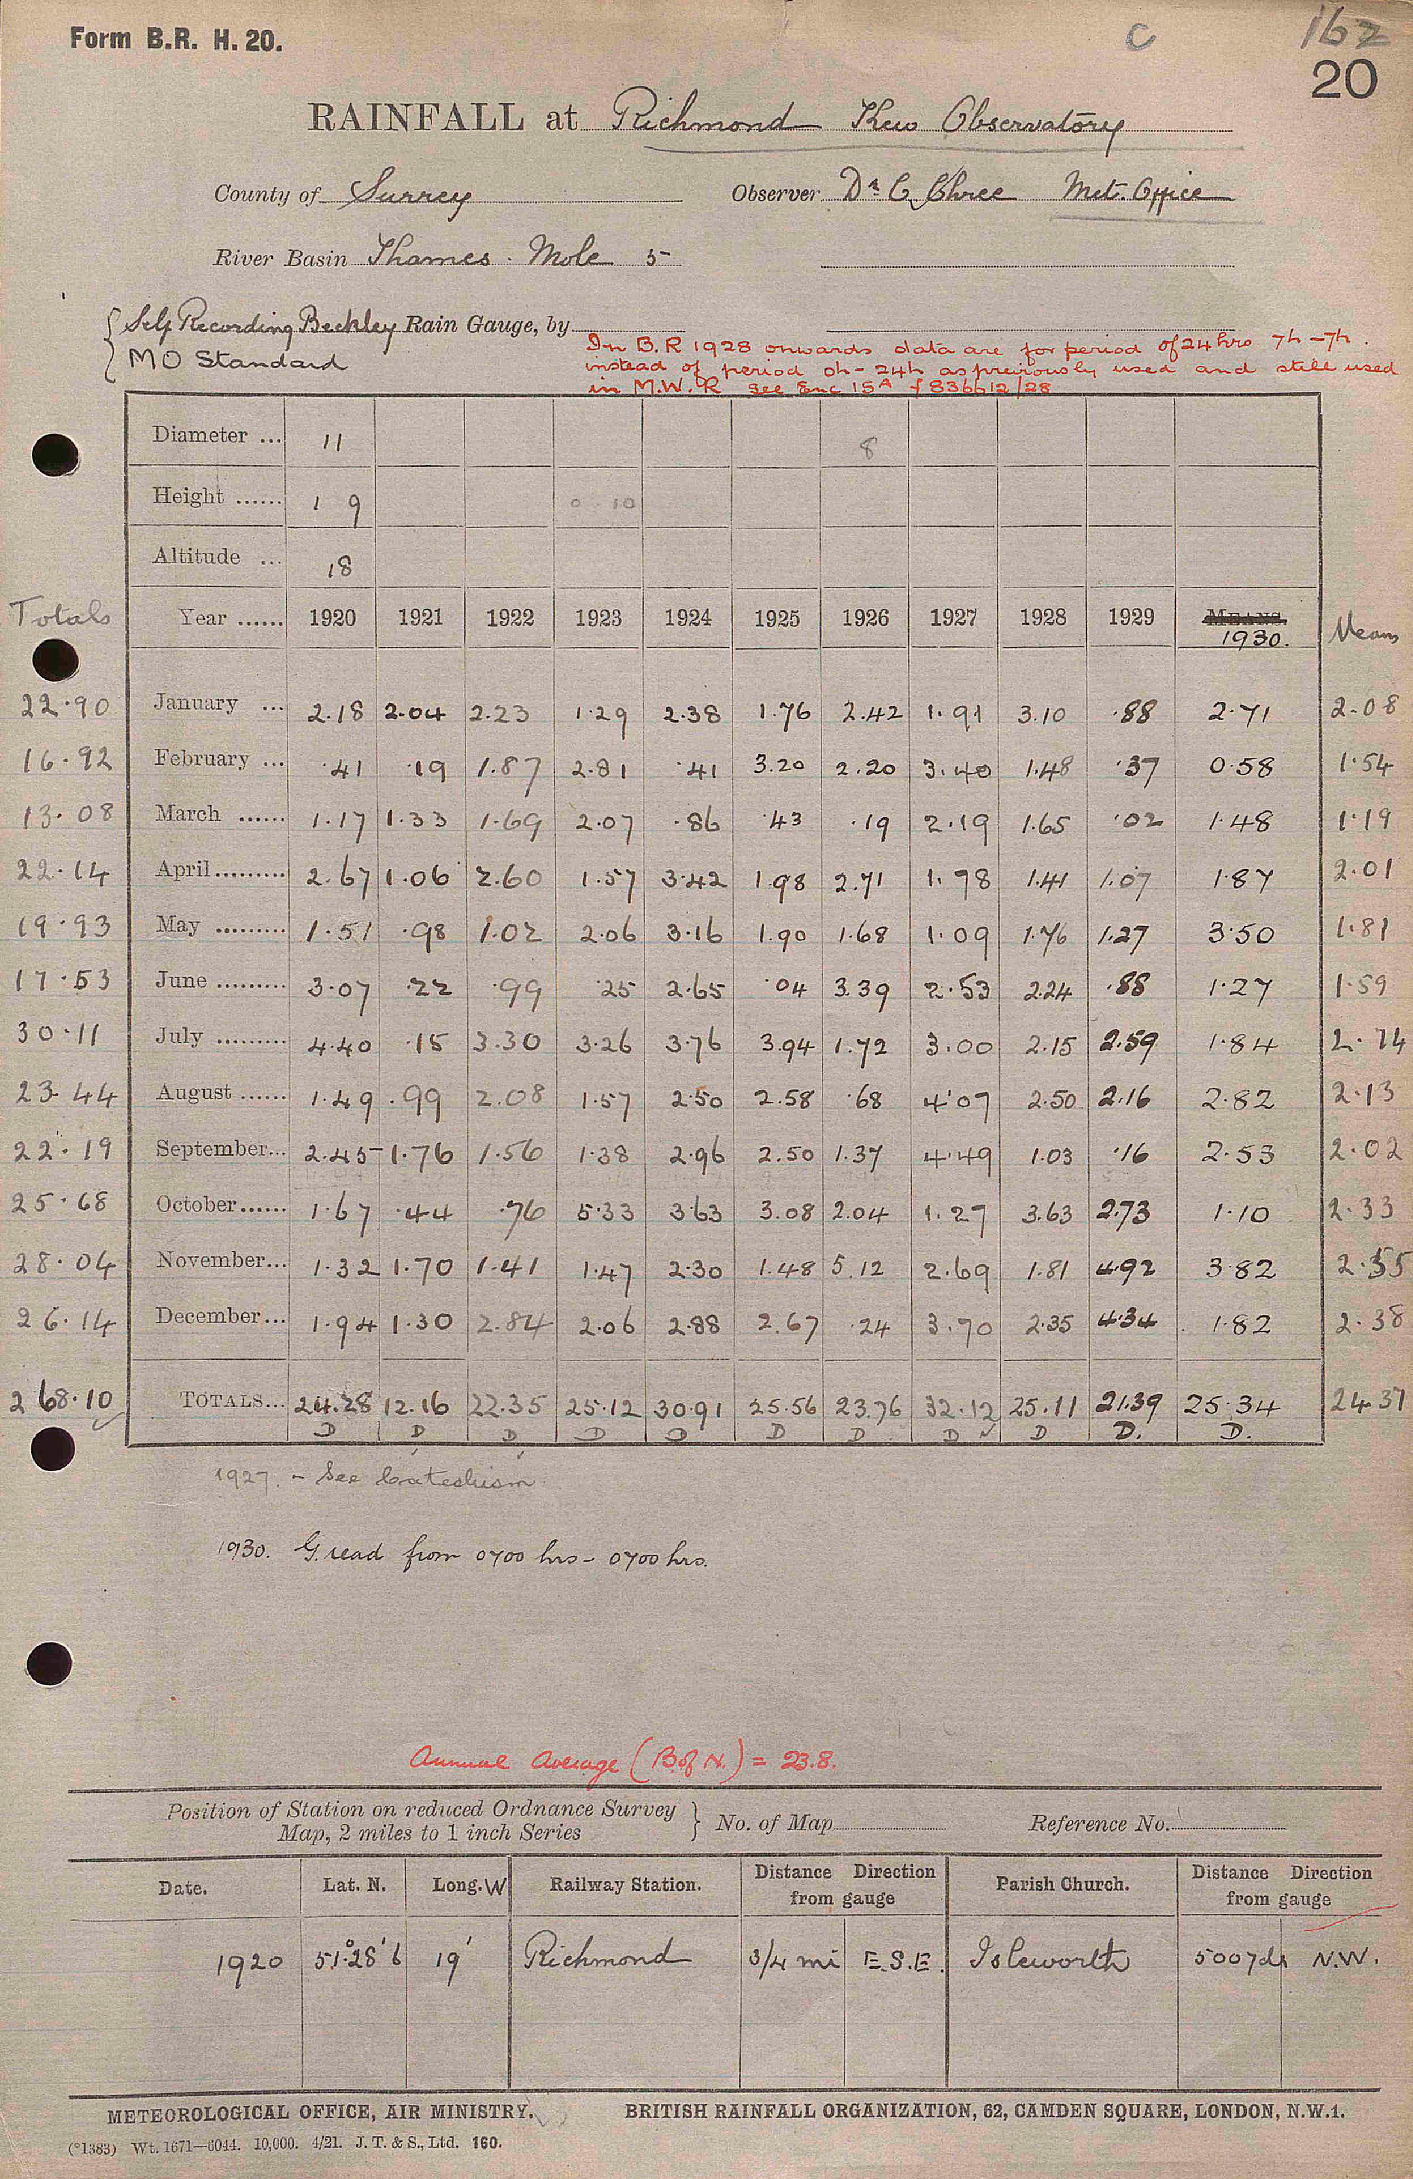 Form B.R. H. 20.
C
162
20
RAINFALL at Richmond Kew Observatory
County of Surrey Observer Dr C Chree Met. Office
River Basin Thames. Mole 5
Self Recording Beckley Rain Gauge, by
MO Standard
In B.R 1928 onwards data are for period of 24 hrs 7h - 7h.
instead of period 0h - 24h as previously used and still used
in M.W.R See Enc 15A f 836612/28
Diameter ... 11 8
Height ...... 1 9 0 10
Altitude ... 18
Totals Year ...... 1920 1921 1922 1923 1924 1925 1926 1927 1928 1929 MEANS. 1930. Means
22.90 January ... 2.18 2.04 2.23 1.29 2.38 1.76 2.42 1.91 3.10 .88 2.71 2.08
16.92 February ... .41 .19 1.87 2.81 .41 3.20 2.20 3.40 1.48 .37 0.58 1.54
13.08 March ...... 1.17 1.33 1.69 2.07 .86 .43 .19 2.19 1.65 .02 1.48 1.19
22.14 April ......... 2.67 1.06 2.60 1.57 3.42 1.98 2.71 1.78 1.41 1.07 1.87 2.01
19.93 May ......... 1.51 .98 1.02 2.06 3.16 1.90 1.68 1.09 1.76 1.27 3.50 1.81
17.53 June ......... 3.07 .22 .99 .25 2.65 .04 3.39 2.53 2.24 .88 1.27 1.59
30.11 July ......... 4.40 .15 3.30 3.26 3.76 3.94 1.72 3.00 2.15 2.59 1.84 2.74
23.44 August ...... 1.49 .99 2.08 1.57 2.50 2.58 .68 4.07 2.50 2.16 2.82 2.13
22.19 September... 2.45 1.76 1.56 1.38 2.96 2.50 1.37 4.49 1.03 .16 2.53 2.02
25.68 October...... 1.67 .44 .76 5.33 3.63 3.08 2.04 1.27 3.63 2.73 1.10 2.33
28.04 November... 1.32 1.70 1.41 1.47 2.30 1.48 5.12 2.69 1.81 4.92 3.82 2.55
26.14 December... 1.94 1.30 2.84 2.06 2.88 2.67 .24 3.70 2.35 4.34 1.82 2.38
268.10 TOTALS... 24.28 12.16 22.35 25.12 30.91 25.56 23.76 32.12 25.11 21.39 25.34 24.37
D D D D D D D D D D. D.
1927. - See Catechism
1930. G. read from 0700 hrs - 0700 hrs.
Annual Average (B.of N.) = 23.8.
Position of Station on reduced Ordnance Survey
Map, 2 miles to 1 inch Series } No. of Map Reference No.
Date. Lat. N. Long. W Railway Station. Distance Direction from gauge Parish Church. Distance Direction from gauge
1920 51°28'6 19' Richmond 3/4 mi E.S.E. Isleworth 500yds N.W.
METEOROLOGICAL OFFICE, AIR MINISTRY. BRITISH RAINFALL ORGANIZATION, 62, CAMDEN SQUARE, LONDON, N.W.1.
(*1383) Wt. 1671—6044. 10,000. 4/21. J. T. & S., Ltd. 160.